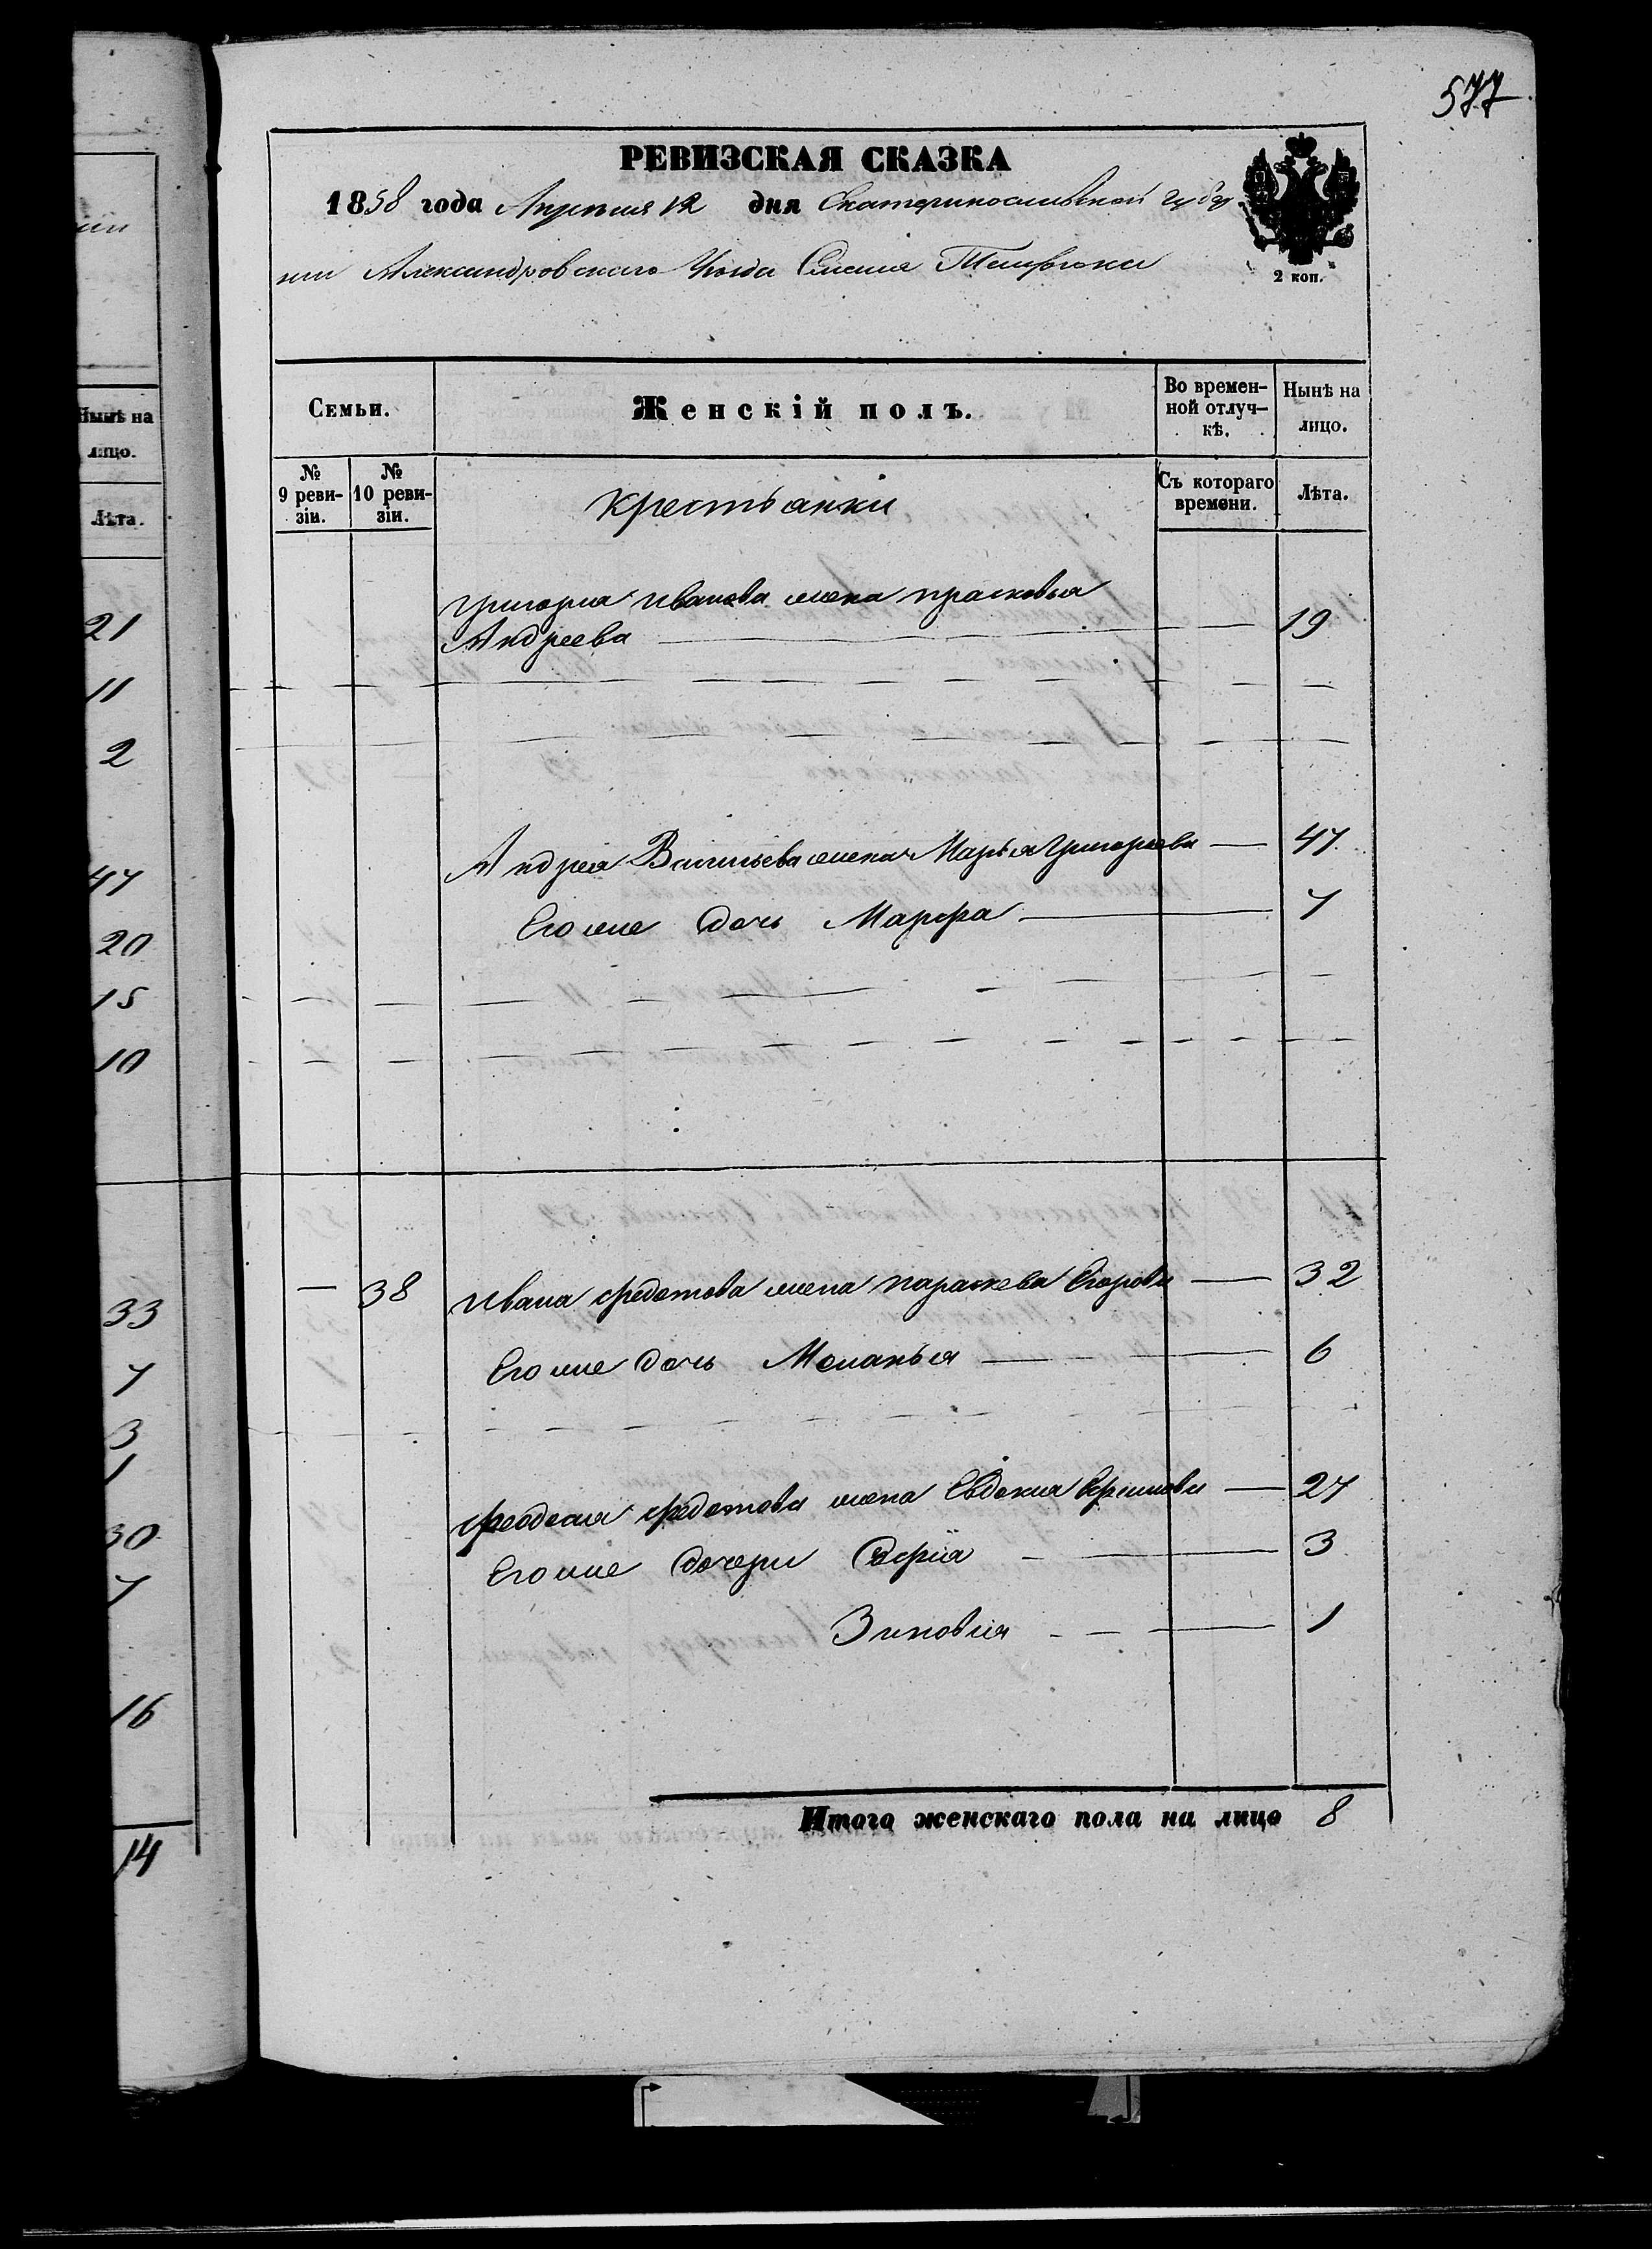 577
РЕВИЗСКАЯ СКАЗКА
1858 года Апреля 12 дня Екатеринославской губер
нии Александровского Уезда Села
2 коп.
Семьи.
Женскій полъ.
Во времен-
ной отлуч-
кѣ.
Нынѣ на
лицо.
№
9 реви-
зіи.
№
10 реви-
зіи.
крестьанки
Съ котораго
времени.
Лѣта.
григория иванова жена прасковья
Андреева 19
Андрея Васильева жена Марья григорьева 47
Его же дочь Марфа 7
38 ивана федотова жена параскева Егорова 32
Его же дочь Меланья 6
феодосия федотова жена Евдокия Ефимова 27
Его же дочери София 3
Зиновия 1
Итого женскаго пола на лицо 8
Нынѣ на
лицо.
Лѣта.
21
11
2
47
20
15
10
33
7
3
1
30
7
16
14